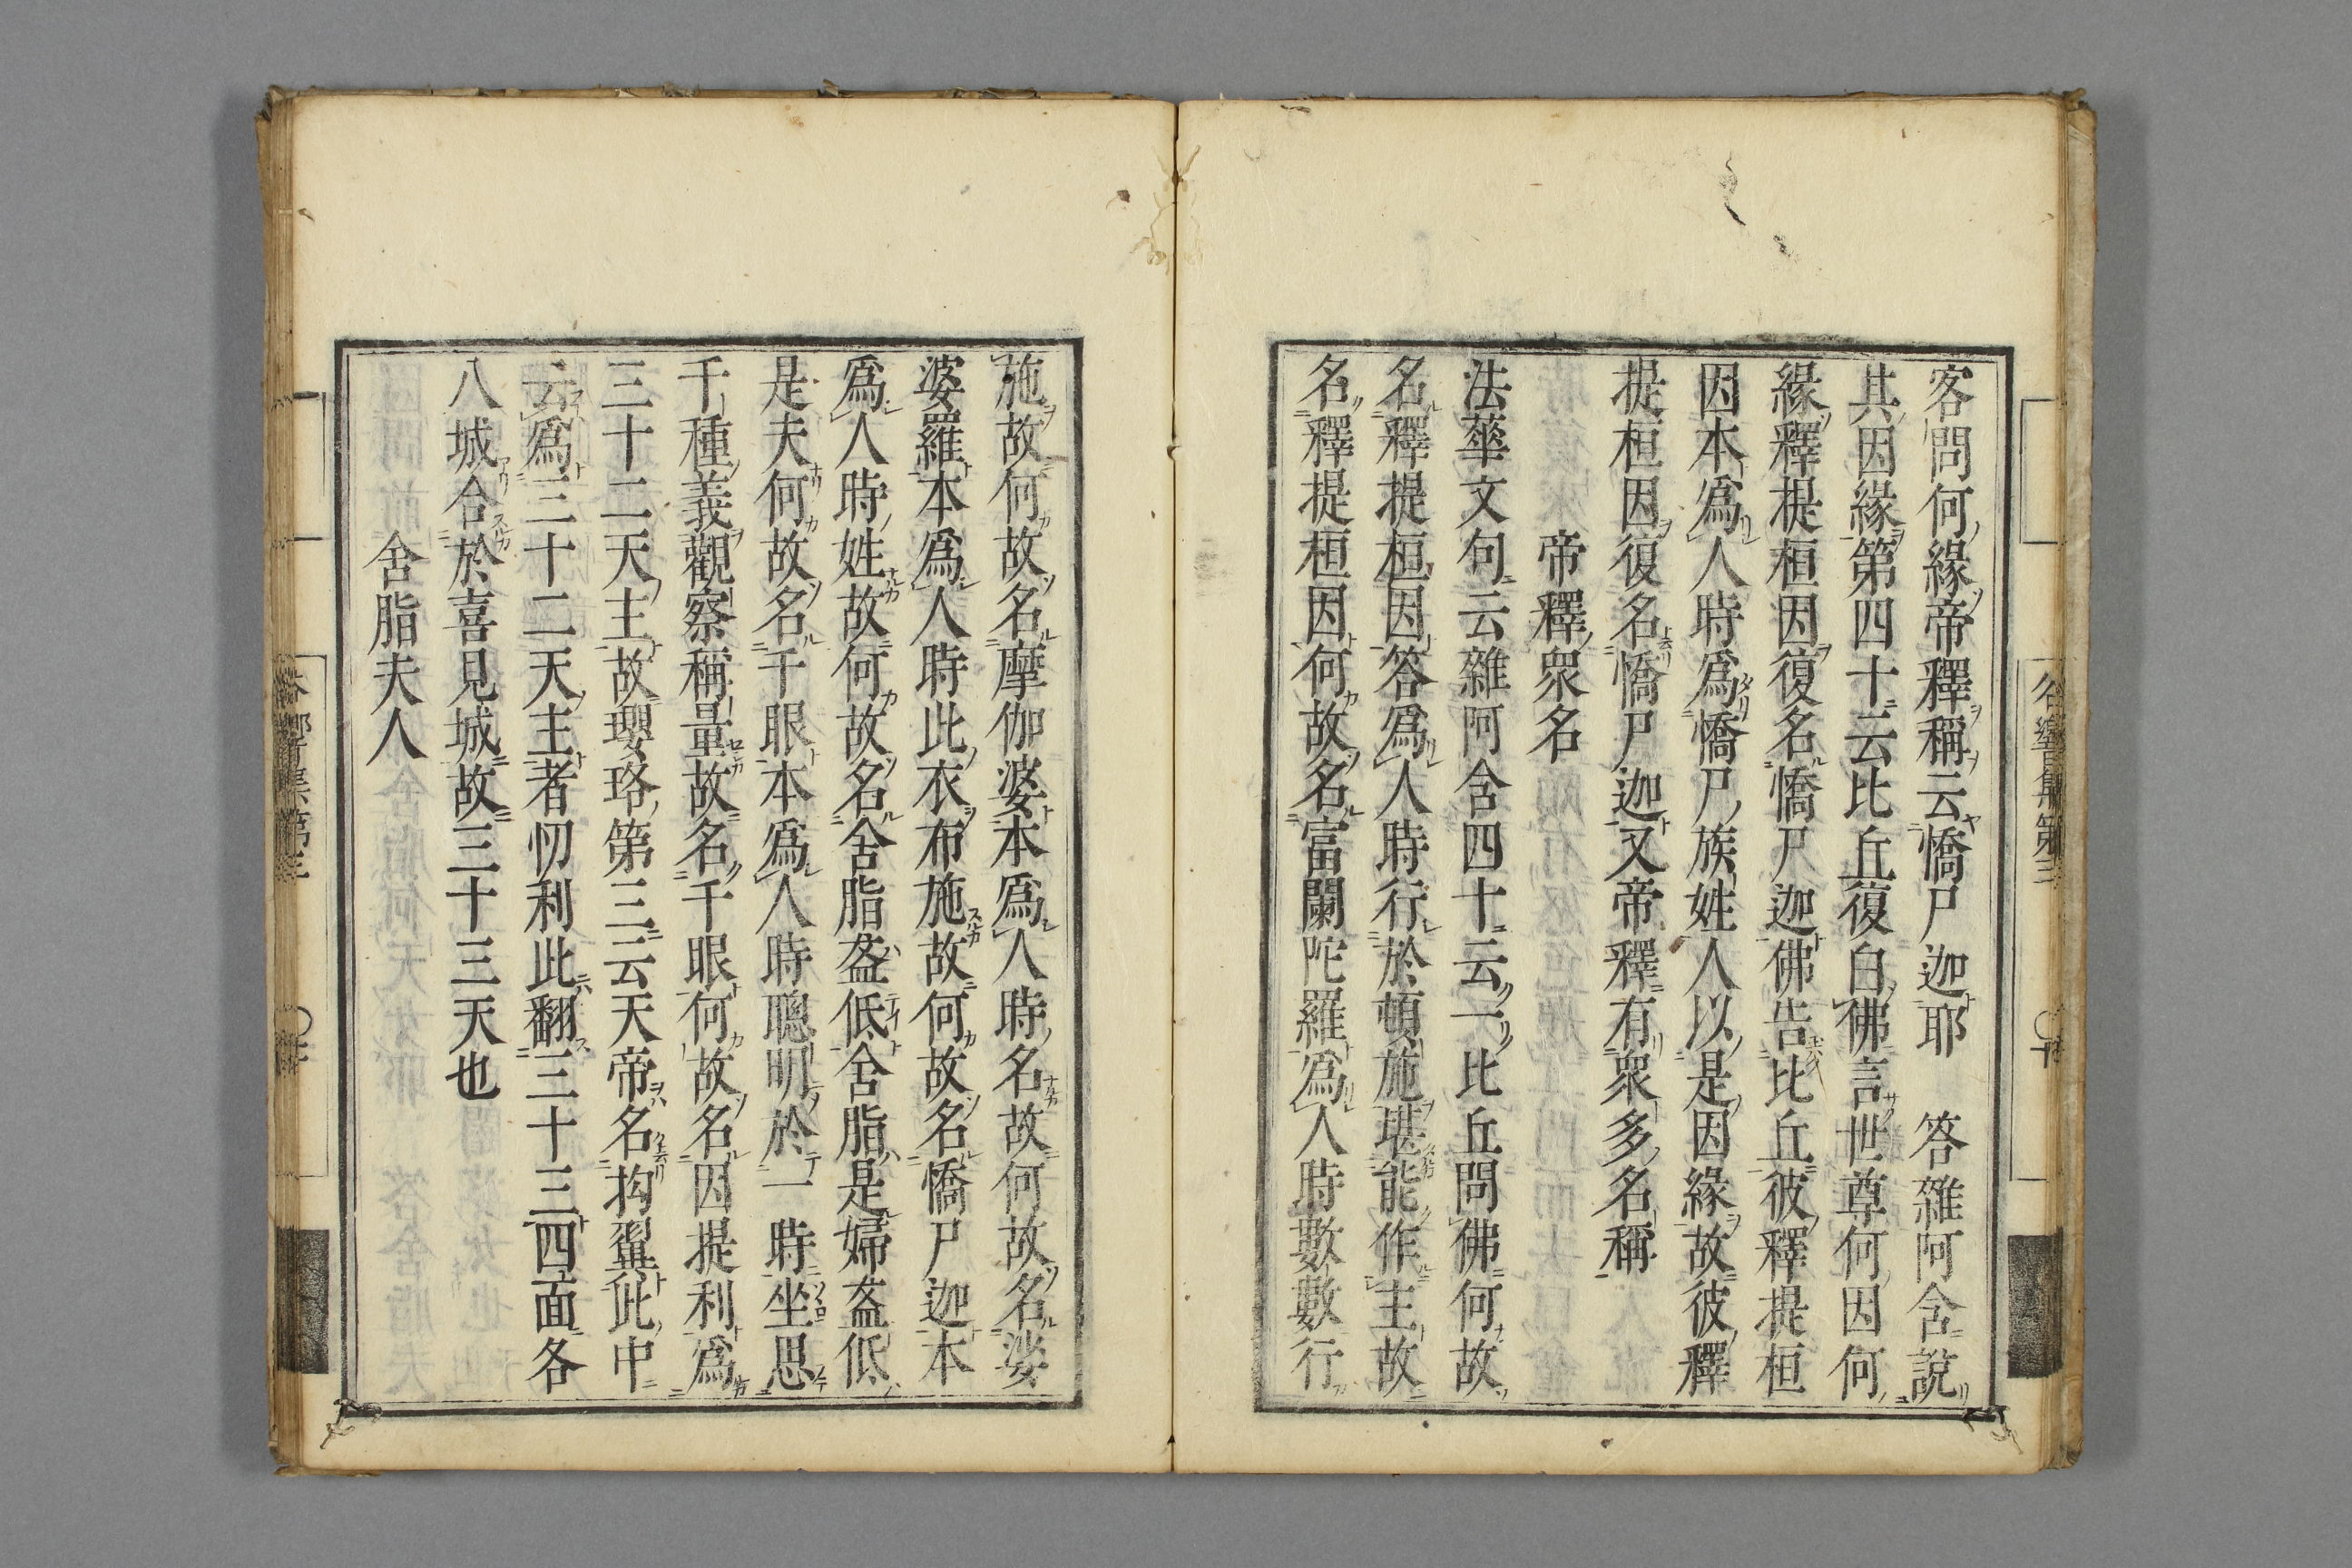 客問何緣帝釋稱云憍尸迦耶　答雜阿含說
其因緣第四十云比丘復白佛言世尊何因何
緣釋提桓因復名憍尸迦佛告比丘彼釋提桓
因本爲人時爲憍尸族姓人以是因緣故彼釋
提桓因復名憍尸迦又帝釋有衆多名稱
帝釋衆名
法華文句云雜阿含四十云一比丘問佛何故
名釋提桓因答爲人時行於頓施堪能作主故
名釋提桓因何故名富闌陀羅爲人時數數行
施故何故名摩伽婆本爲人時名故何故名娑
婆羅本爲人時此衣布施故何故名憍尸迦本
爲人時姓故何故名舍脂盍低舍脂是婦盍低
是夫何故名千眼本爲人時聰明於一時坐思
千種義觀察稱量故名千眼何故名因提利爲
三十二天主故瓔珞第三云天帝名拘翼此中
云爲三十二天主者忉利此翻三十三四面各
八城合於喜見城故三十三天也
舍脂夫人
谷響集第三
谷響集第三